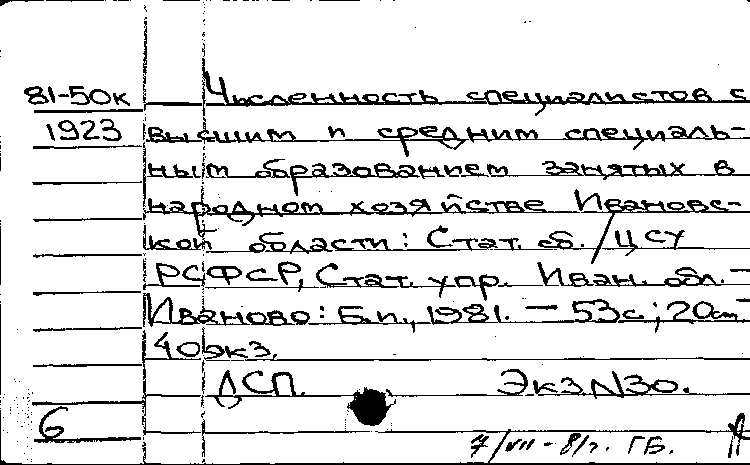 81-50к Численность специалистов с
1923 высшим и средним специаль-
ным образованием занятых в
народном хозяйстве Ивановс-
кой области: Стат. сб./ЦСУ
РСФСР, Стат. упр. Иван. обл.-
Иваново: Б.и., 1981. - 53с; 20см-
40экз.
ДСП. Экз N30.
6
7/VII-81г. ГБ.